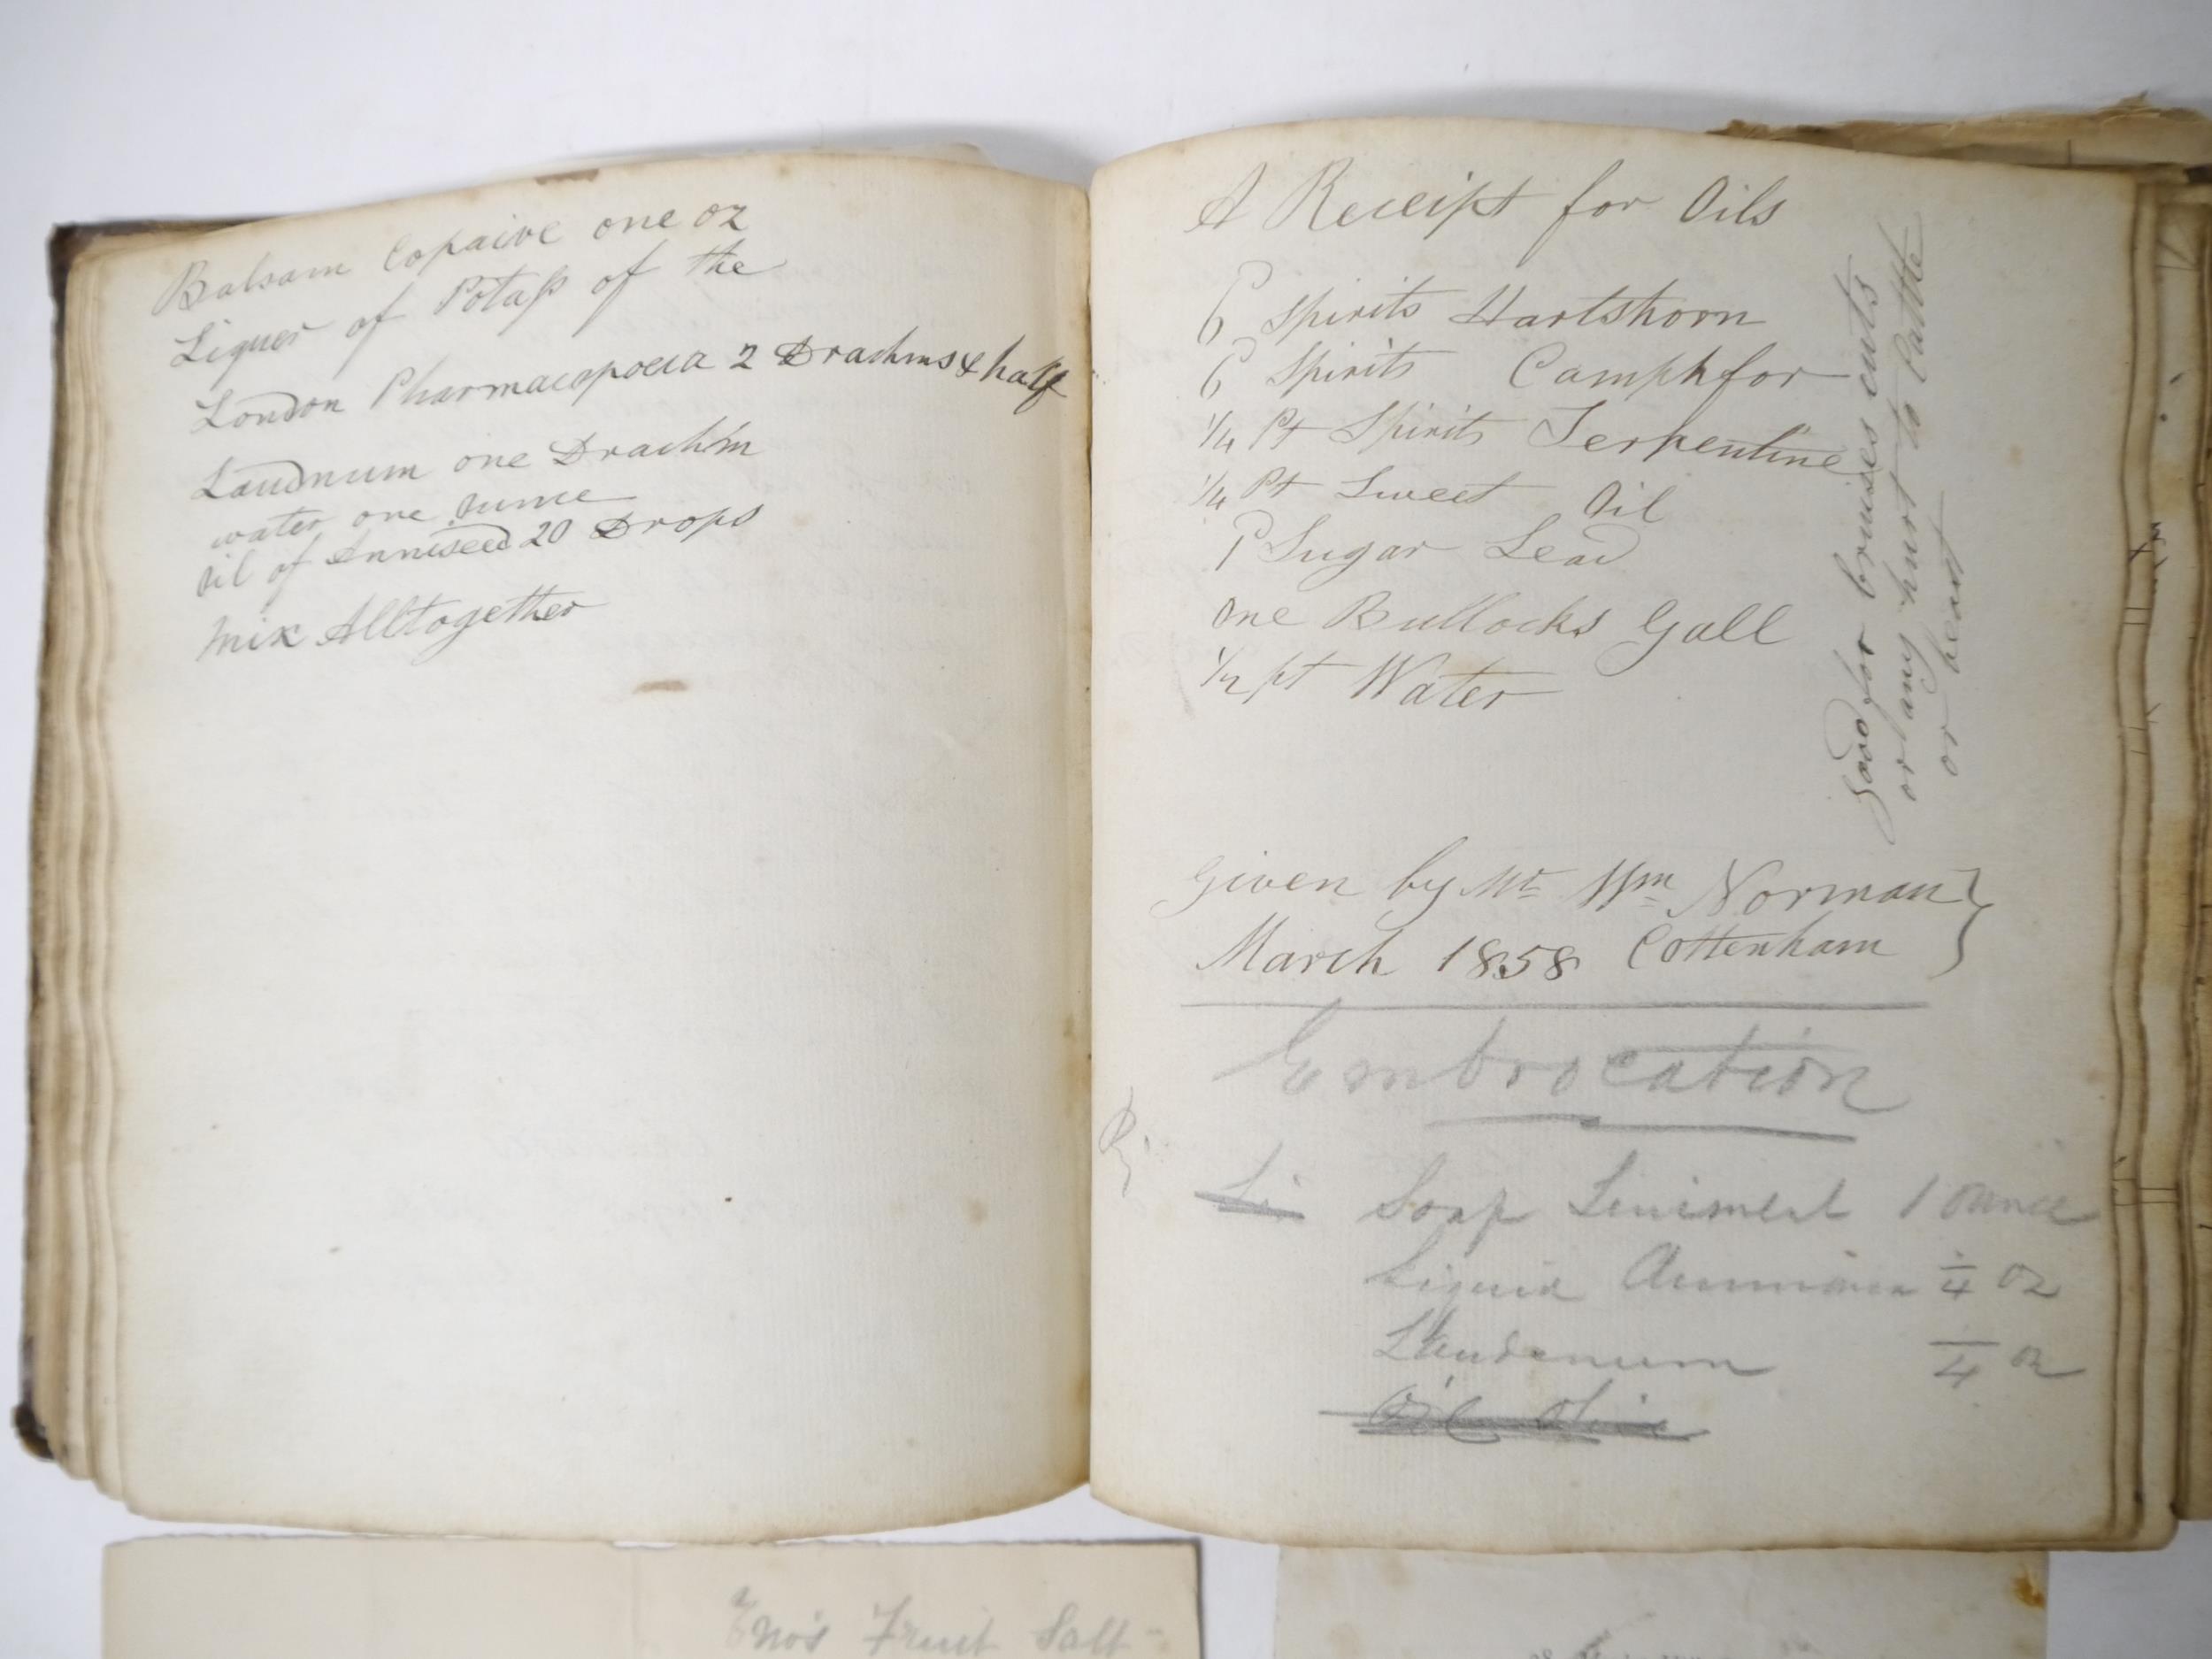 Balsam Copaive one oz
Liquer of Potaſs of the
London Pharmacopoeia 2 Drachms & half
Laudnum one Drachm
water one ounce
oil of Anniseed 20 Drops
Mix Alltogether
A Receipt for Oils
6 Spirits Hartshorn
6 Spirits Camphfor
1/4 Pt Spirits Terpentine
1/4 Pt Sweet Oil
Sugar Lead
one Bullocks Gall
1/2 pt Water
Good for bruises cuts
or any hurt to Cattle
or beast
Given by Mr Wm Norman
March 1858 Cottenham
Embrocation
Li Soap Liniment 1 ounce
Liquid Ammonia 1/4 oz
Laudenum 1/4 oz
Oil Olive
Eno's Fruit Salt